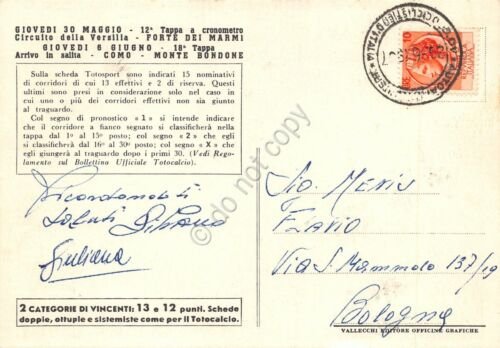 GIOVEDI 30 MAGGIO - 12ª Tappa a cronometro
Circuito della Versilia - FORTE DEI MARMI
GIOVEDI 6 GIUGNO - 18ª Tappa
Arrivo in salita - COMO - MONTE BONDONE
Sulla scheda Totosport sono indicati 15 nominativi
di corridori di cui 13 effettivi e 2 di riserva. Questi
ultimi sono presi in considerazione solo nel caso in
cui uno o più dei corridori effettivi non sia giunto
al traguardo.
Col segno di pronostico « 1 » si intende indicare
che il corridore a fianco segnato si classificherà nella
tappa dal 1º al 15º posto; col segno « 2 » che egli
si classificherà dal 16º al 30º posto; col segno « X » che
egli giungerà al traguardo dopo i primi 30. (Vedi Rego-
lamento sul Bollettino Ufficiale Totocalcio).
Ricordandoti
saluti Silvano
Giuliana
2 CATEGORIE DI VINCENTI: 13 e 12 punti. Schede
doppie, ottuple e sistemiste come per il Totocalcio.
CICLISTICO D'ITALIA
Sig. 
FLAVIO
Via S. Mammolo 137/19
Bologna
VALLECCHI EDITORE OFFICINE GRAFICHE
do not copy